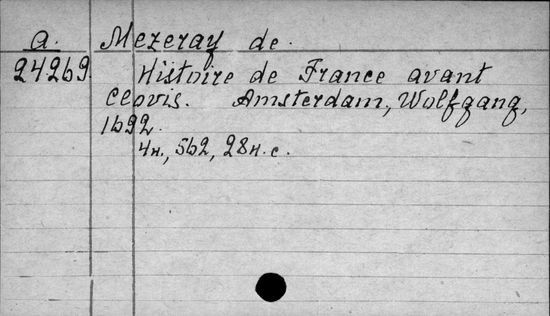 a. Mezeray de.
24269. Histoire de France avant
Clovis. Amsterdam, Wolfgang,
1692.
4н., 562, 28н. с.